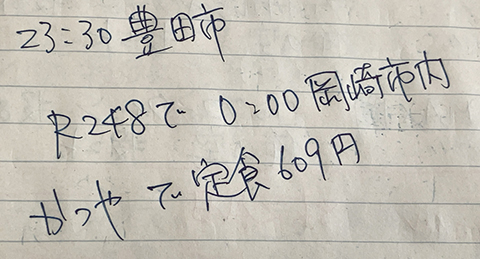 23:30 豊田市
R248で 0:00 岡崎市内
かつやで定食609円